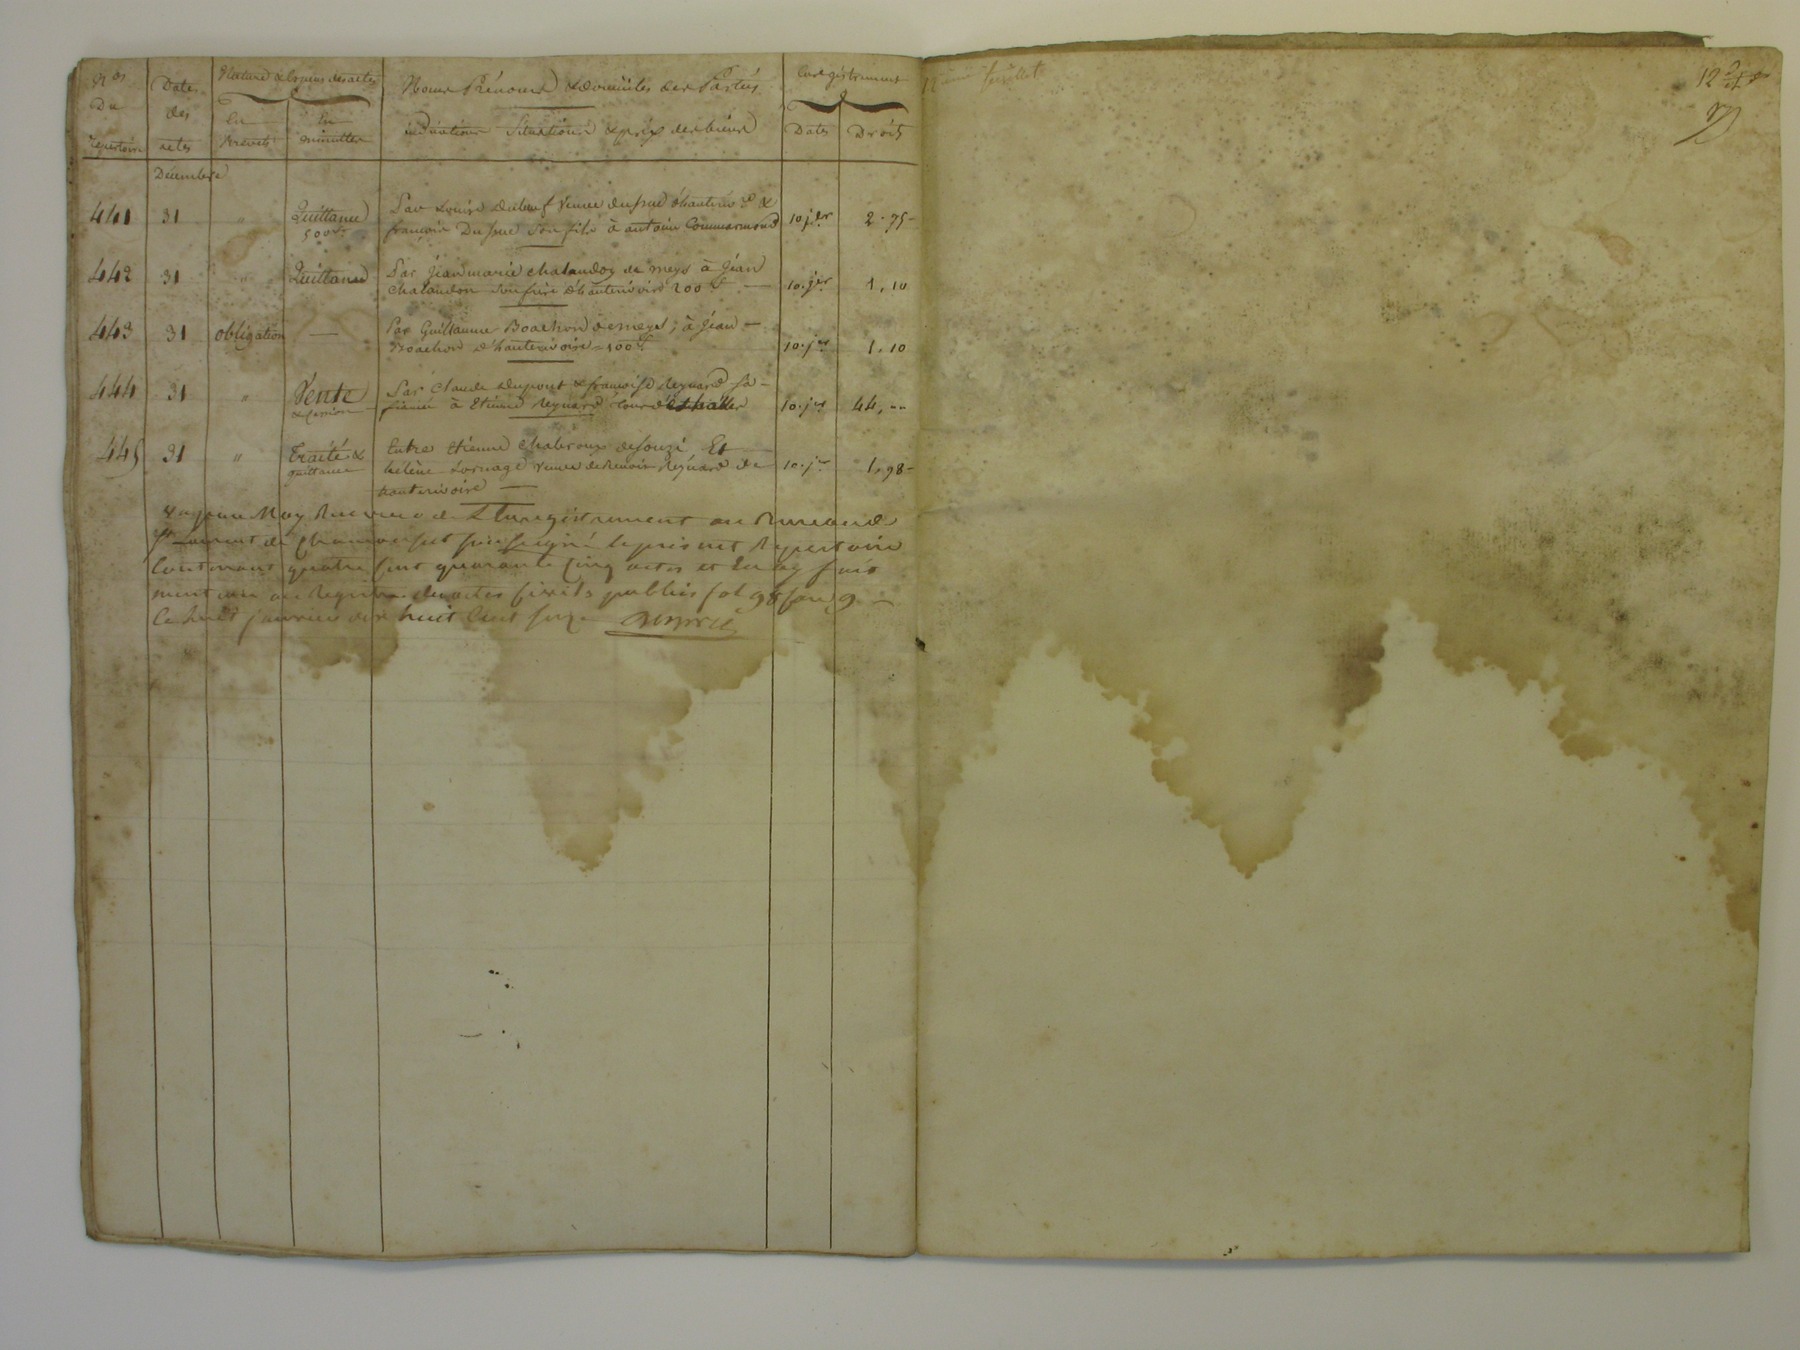 Nos Du Répertoire
Dates des actes
Nature & Espèces des actes
En Brevets
En minuttes
Noms Prénoms & Domiciles des Parties
indications Situations & prix des biens
Enregistrement
Dates
Droits
Décembre
441 31 " Quittance 500f. Par Louise Dubeuf veuve Dupué d'hauterivre &
françois Dupué Son fils à antoine Commarmond 10 jer 2.75
442 31 " Quittance Par Jean marie chalandon de meys à Jean
Chalandon son frère d'hauterivoire 200f 10. jer 1,10
443 31 obligation — Par Guillaume Boachon de meys, à Jean
Boachon d'hauterivoire = 100f. 10. jer 1,10
444 31 " Vente & cession Par Claude Dupont & françoise Reynard sa
fiancée à Etienne Reynard 10. jer 44,""
445 31 " Traité & quittance Entre Etienne Chabroux de souzi, Et
hélène Lornage veuve de Benoit Reynard de 10. jer 1,98
hauterivoire
Receveur de L'Enregistrement au Bureau de
St Laurent de Chamousset soussigné le présent Repertoire
Contenant quatre cent quarante Cinq actes et En ay fait
mention au Registre des actes civils publics fol 98 Case 9
Ce huit janvier dix huit Cent seize
12 eme feuillet
12